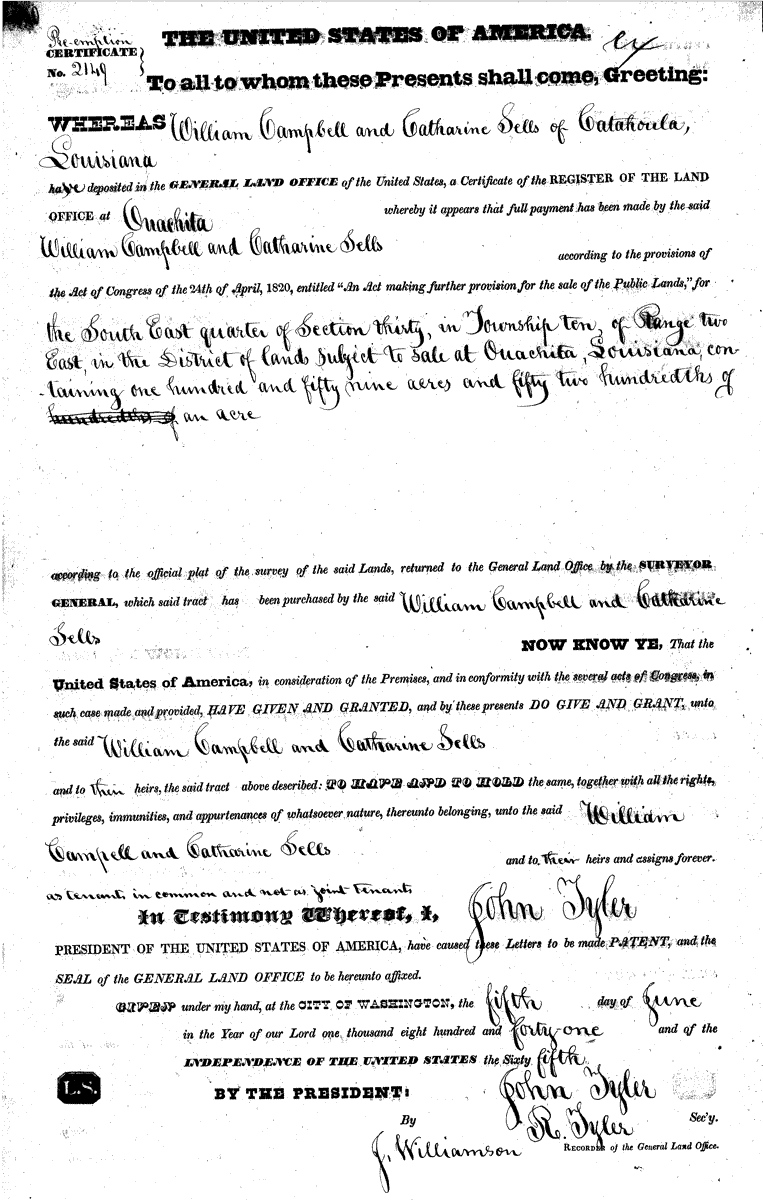 Pre-emption
CERTIFICATE
No. 2149
THE UNITED STATES OF AMERICA.
To all to whom these Presents shall come, Greeting:
WHEREAS William Campbell and Catharine Sells of Catahoula,
Louisiana
have deposited in the GENERAL LAND OFFICE of the United States, a Certificate of the REGISTER OF THE LAND
OFFICE at Ouachita whereby it appears that full payment has been made by the said
William Campbell and Catharine Sells according to the provisions of
the Act of Congress of the 24th of April, 1820, entitled "An Act making further provision for the sale of the Public Lands," for
the South East quarter of Section thirty, in Township ten, of Range two
East, in the District of lands subject to sale at Ouachita, Louisiana, con-
-taining one hundred and fifty nine acres and fifty two hundredths of
hundredths of an acre
according to the official plat of the survey of the said Lands, returned to the General Land Office by the SURVEYOR
GENERAL, which said tract has been purchased by the said William Campbell and Catharine
Sells
NOW KNOW YE, That the
United States of America, in consideration of the Premises, and in conformity with the several acts of Congress, in
such case made and provided, HAVE GIVEN AND GRANTED, and by these presents DO GIVE AND GRANT, unto
the said William Campbell and Catharine Sells
and to their heirs, the said tract above described: TO HAVE AND TO HOLD the same, together with all the rights,
privileges, immunities, and appurtenances of whatsoever nature, thereunto belonging, unto the said William
Campell and Catharine Sells and to their heirs and assigns forever.
as tenants in common and not as joint tenants
In Testimony Whereof, I, John Tyler
PRESIDENT OF THE UNITED STATES OF AMERICA, have caused these Letters to be made PATENT, and the
SEAL of the GENERAL LAND OFFICE to be hereunto affixed.
GIVEN under my hand, at the CITY OF WASHINGTON, the fifth day of June
in the Year of our Lord one thousand eight hundred and forty-one and of the
INDEPENDENCE OF THE UNITED STATES the Sixty fifth
L.S.
BY THE PRESIDENT: John Tyler
By R. Tyler Sec'y.
J. Williamson RECORDER of the General Land Office.